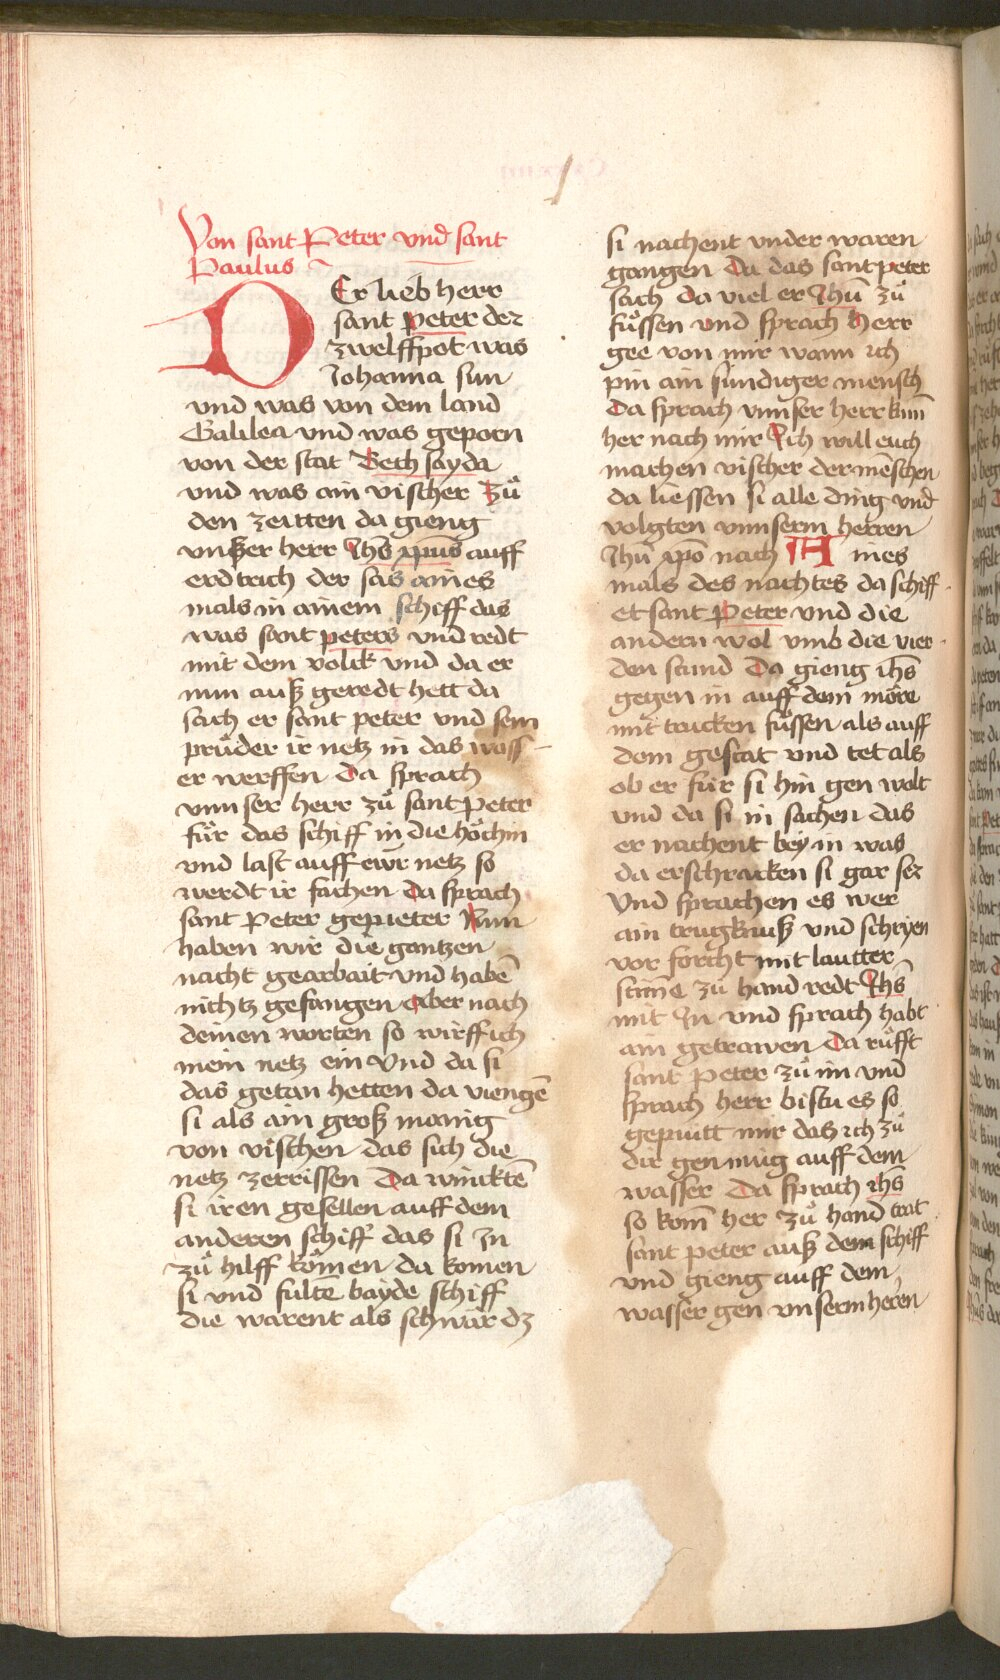 Von sant Peter vnd sant
Paulus
DEr lieb herr
sant Peter der
zwelffpot was
Johanna sun
vnd was von dem land
Galilea vnd was geporn
von der stat Bethsayda
vnd was ain vischer Zuͦ
den zeitten da gieng
vnser herr Jhs xp̄us auff
erdtrich der sas aines
mals in ainem schiff das
was sant peters vnd redt
mit dem volck vnd da er
nun auß geredt hett da
sach er sant peter vnd sein
pruͤder ir netz in das wass
er werffen Da sprach
vnnser herr zuͦ sant Peter
fuͤr das schiff in die hoͤchin
vnd last auff ewr̄ netz so
werdt ir fachen Da sprach
sant Peter gepieter Nun
haben wir die gantzen
nacht gearbait vnd habē
nichtz gefangen Aber nach
deinen worten so wirff ich
mein netz ein Vnd da si
das getan hetten da viengē
si als ain groß mänig
von vischen das sich die
netz zerrissen Da wincktē
si iren gesellen auff dem
anderen schiff das si In
zuͦ hilff koͤmen da komen
si vnd fultē bayde schiff
die warent als schwär dz
si nachent vnder waren
gangen Da das sant peter
sach da viel er Jhū zuͦ
fuͤssen vnd sprach Herr
gee von mir wann ich
pin ain sündiger mensch
Da sprach vnnser herr kum̄
her nach mir Ich will euch
machen vischer der mēschen
da liessen si alle ding vnd
volgten vnnserm herren
Jhū xp̄o nach Aines
mals des nachtes da schiff
et sant Peter vnd die
andern wol vmb die vier
den stund Da gieng ihs̄
gegen in auff dem möre
mit trucken fuͤssen als auff
dem gestat vnd tet als
ob er für si hin gen wolt
vnd da si in sachen das
er nachent bey in was
da erschracken si gar ser
Vnd sprachen es wer
ain trugknuß vnd schryen
vor forcht mit lautter
stim̄e zuͦ hand redt Jhs̄
mit In vnd sprach habt
ain getrawen Da ruͦfft
sant peter zuͦ im vnd
sprach herr bistu es so
gepuitt mir das ich zuͦ
dir gen müg auff dem
wasser Da sprach ihs̄
so kom̄ her zuͦ hand trat
sant peter auß dem schiff
vnd gieng auff dem
wasser gen vnserm heren